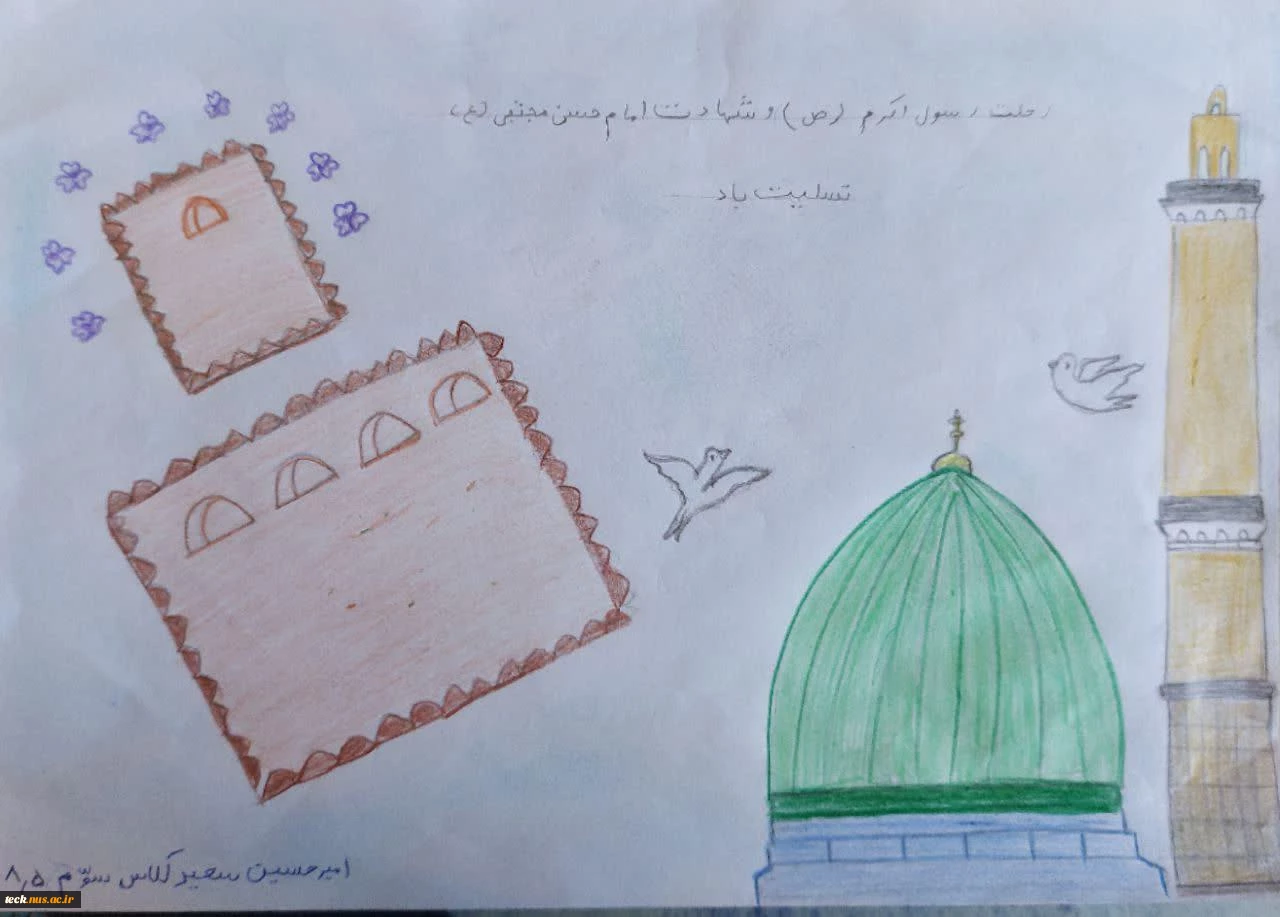 رحلت رسول اکرم (ص) و شهادت امام حسن مجتبی (ع)
تسلیت باد
امیرحسین سعید کلاس سوّم ۸٫۵
teck.nus.ac.ir